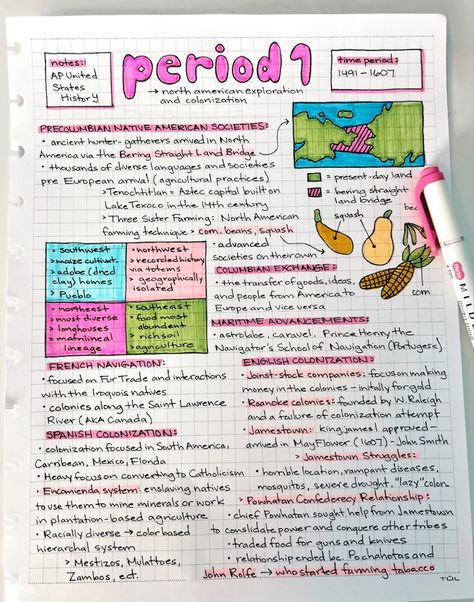 notes:
AP United
States
History
period 1
→ north american exploration
and colonization
time period:
1491-1607
PRECOLUMBIAN NATIVE AMERICAN SOCIETIES:
• ancient hunter-gatherers arrived in North
America via the Bering Straight Land Bridge
• thousands of diverse languages and societies
pre European arrival (agricultural practices)
> Tenochtitlan = Aztec capital built on
Lake Texoco in the 14th century
> Three Sister Farming: North American
farming technique > corn, beans, squash
• advanced
societies on their own
= present-day land
= bering straight
land bridge
squash
squash
corn
southwest
> maize cultivat.
> adobe (dried
clay) homes
> Pueblo
northwest
> recorded history
via totems
> geographically
isolated
northeast
> most diverse
> longhouses
> matrilineal
lineage
southeast
> food most
abundent
> rich soil
> agriculture
COLUMBIAN EXCHANGE:
• the transfer of goods, ideas,
and people from America to
Europe and vice versa
MARITIME ADVANCEMENTS:
• astrolabe, caravel, Prince Henry the
Navigator's School of Navigation (Portugese)
FRENCH NAVIGATION:
• focused on Fur Trade and interactions
with the Iroquois natives
• colonies along the Saint Lawrence
River (AKA Canada)
SPANISH COLONIZATION:
• colonization focused in South America,
Carribean, Mexico, Florida
• Heavy focus on converting to Catholicism
• Encamienda system: enslaving natives
to use them to mine minerals or work
in plantation-based agriculture
• Racially diverse → color based
hierarchal system
> Mestizos, Mulattoes,
Zambos, ect.
ENGLISH COLONIZATION:
• Joinst-stock companies: focus on making
money in the colonies - initally for gold
• Roanoke colonies: founded by W. Raleigh
and a failure of colonization attempt
• Jamestown: king james I approved-
arrived in MayFlower (1607) - John Smith
> Jamestown Struggles:
• horrible location, rampant diseases,
mosquitos, severe drought, "lazy" colon.
> Powhatan Confederecy Relationship:
• chief Powhatan sought help from Jamestown
to consolidate power and conquere other tribes
• traded food for guns and knives
• relationship ended bc. Pochahotas and
John Rolfe → who started farming tabacco
TUL